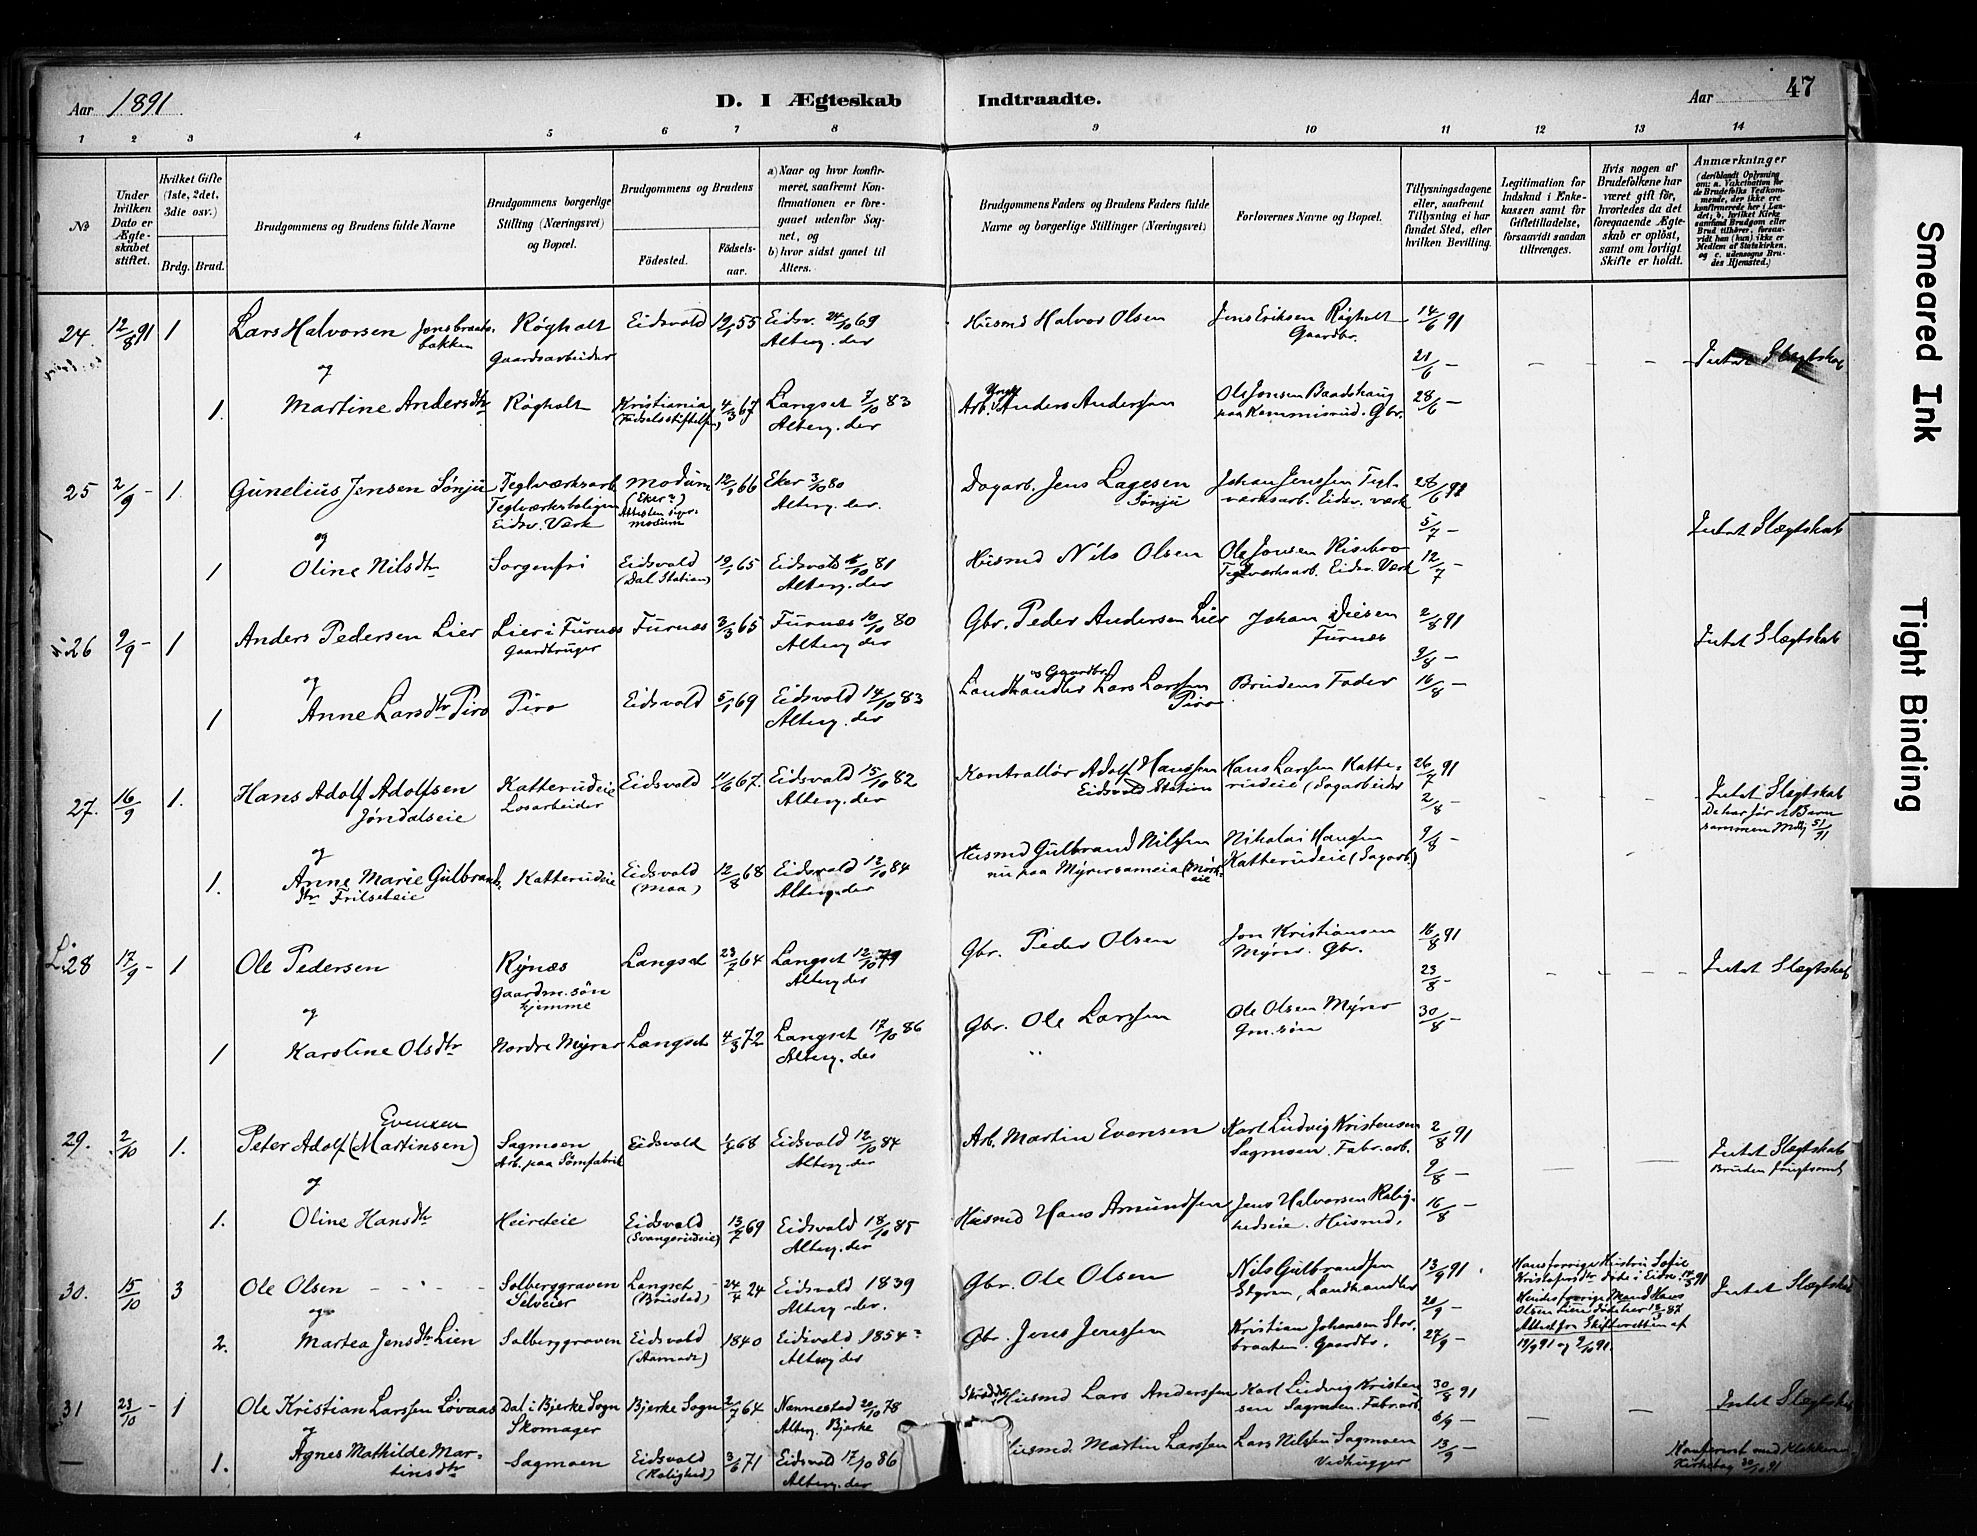 Aar 1891.
D. I Ægteskab Indtraadte.
Aar 47
1 2 3 4 5 6 7 8 9 10 11 12 13 14
№
Under hvilken Dato er Ægteskabet stiftet.
Hvilket Gifte (1ste, 2det, 3die osv.)
Brdg. Brud.
Brudgommens og Brudens fulde Navne
Brudgommens borgerlige Stilling (Næringsvei) og Bopæl.
Brudgommens og Brudens
Födested. Födselsaar.
a) Naar og hvor konfirmeret, saafremt Konfirmationen er foregaaet udenfor Sognet, og
b) hvor sidst gaaet til Alters.
Brudgommens Faders og Brudens Faders fulde Navne og borgerlige Stillinger (Næringsvei)
Forlovernes Navne og Bopæl.
Tillysningsdagene eller, saafremt Tillysning ei har fundet Sted, efter hvilken Bevilling.
Legitimation for Indskud i Enkekassen samt for Giftetilladelse, forsaavidt saadan tiltrænges.
Hvis nogen af Brudefolkene har været gift för, hvorledes da det foregaaende Ægteskab er oplöst, samt om lovligt Skifte er holdt.
Anmærkninger (deriblandt Oplysning om: a. Vakcination for de Brudefolks Vedkommende, der ikke ere konfirmerede her i Landet, b. hvilket Kirkesamfund Brudgom eller Brud tilhörer, forsaavidt han (hun) ikke er Medlem af Statskirken, og c. udensogns Brudes Hjemsted.)
24. 12/8 91 1 Lars Halvorsen Jonsbraatbakken Røgholt Gaardsarbeider Eidsvold 19/1 55 Eidsv. 24/10 69 Alterg. der Husmd Halvor Olsen Jens Eriksen Røgholt Gaardbr. 14/6 91
og 21/6 – – – – Intet Slægtskab
1. Martine Andersdtr Røgholt Kristiania (Fødselsstiftelsen) 4/3 67 Langset 7/10 83 Alterg. der Arb. Anders Andersen Ole Jonsen Baadshaug paa Kommisrud. Gbr. 28/6 –
25 2/9 – 1. Gunelius Jensen Sønju Teglværksarb. Teglværksboligen Eidsv. Værk Modum (Eker?) 12/1 66 Eker 3/10 80 Alterg. der. Dagarb. Jens Lagesen Sønju Johan Jenssen Teglværksarb. Eidsv. værk 28/6 91
og 5/7 – Intet Slægtskab
1 Oline Nilsdtr Sorgenfri Eidsvold (Dal Station) 19/1 65 Eidsvold 81 Alterg. der Husmd Nils Olsen Ole Jonsen Risebro Teglværksarb. Eidsv. Værk 12/7 –
26 9/9 – 1 Anders Pedersen Lier Lier i Furnes Gaardbruger Furnæs 3/3 65 Furnæs 10/10 80 Alterg. der Gbr. Peder Andersen Lier Johan Diesen Furnæs 2/8 91 Intet Slægtskab
og 9/8 –
1 Anne Larsdtr Piro Piro Eidsvold 5/1 69 Eidsvold 14/10 83 Alterg. der Landhandler og Gaardbr. Lars Larssen Piro Brudens Fader 16/8 –
27. 16/9 1. Hans Adolf Adolfsen Jøndalseie Katterudeie Løsarbeider Eidsvold 11/6 67. Eidsvold 15/10 82 Alterg. der Kontrollør Adolf Hanssen Eidsvold Station Hans Larssen Katterudeie (Sagarbeider 26/7 91
2/8 – – – – Intet Slægtskab De har før et Barn sammen Mdtg 51/91
og
1. Anne Marie Gulbrandsdtr Frilseteie Katterudeie Eidsvold (Moa) 12/8 68 Eidsvold 12/10 84 Alterg. der Husmd Gulbrand Nilssen nu paa Myrersameia Nikolai Hanssen Katterudeie (Sagarb.) 9/8 –
L. 28 17/9 – 1 Ole Pedersen Rynæs Gaardm. søn hjemme Langset 23/7 64 Langset 12/10 79 Alterg der Gbr. Peder Olsen Jon Kristiansen Myrer. Gbr. 16/8 91
og 23/8 – – – – Intet Slægtskab
1 Karoline Olsdtr Nordre Myrer Langset 4/3 72 Langset 17/10 86 Alterg. der Gbr. Ole Larssen Ole Olsen Myrer Gm. søn 30/8 –
29. 2/10 1. Peter Adolf (Martinsen) Evensen Sagmoen Arb. paa Sømfabrik Eidsvold 68 Eidsvold 12/10 84 Alterg. der Arb. Martin Evensen Karl Ludvig Kristensen Sagmoen. Fabr. arb. 2/8 91
og 9/8 – – – Intet Slægtskab Bruden frugtsomlig
1. Oline Hansdtr Heireteie Eidsvold (Svangerudeie) 13/7 69 Eidsvold 18/10 85 Alterg. der Husmd Hans Amundsen Jens Halvorsen Rolighedseie. Husmd. 16/8 –
30. 15/10 3 Ole Olsen Solberggraven Selveier Langset (Brustad) 24/4 24 Eidsvold 1839 Alterg. der. Gbr. Ole Olsen Nils Gulbrandsen Styren, Landhandler 13/9 91. Hans forrige Hustru Sofie Kristofersdtr døde i Eidsv. Intet Slægtskab
og 20/9 – Hendes forrige Mand Hans Olsen Lien døde her 87
2. Martea Jensdtr Lien Solberggraven Eidsvold 1840 Eidsvold 1854 Alterg der Gbr. Jens Jenssen Kristian Johansen Storbraaten. Gaardbr. 27/9 – Attest fra Skifteretten af 19/9 91 og 9/10 91.
31 23/10 – 1 Ole Kristian Larssen Løvaas Dal i Bjerke Sogn Skomager Bjerke Sogn 2/7 64 Nannestad 20/10 78 Alterg. Bjerke Skrædder Husmd Lars Anderssen Karl Ludvig Kristensen Sagmoen. Fabr.arb 30/8 91 – – Intet Slægtskab
og 6/9 –
1. Agnes Mathilde Martinsdtr Sagmoen Eidsvold (Rolighed) 3/6 71 Eidsvold 17/10 86 Alterg. der Husmd. Martin Larssen Lars Nilssen Sagmoen Vedhugger 13/9 – Konfereret med Klokkerens Kirkebog 30/10 91
Smeared Ink
Tight Binding